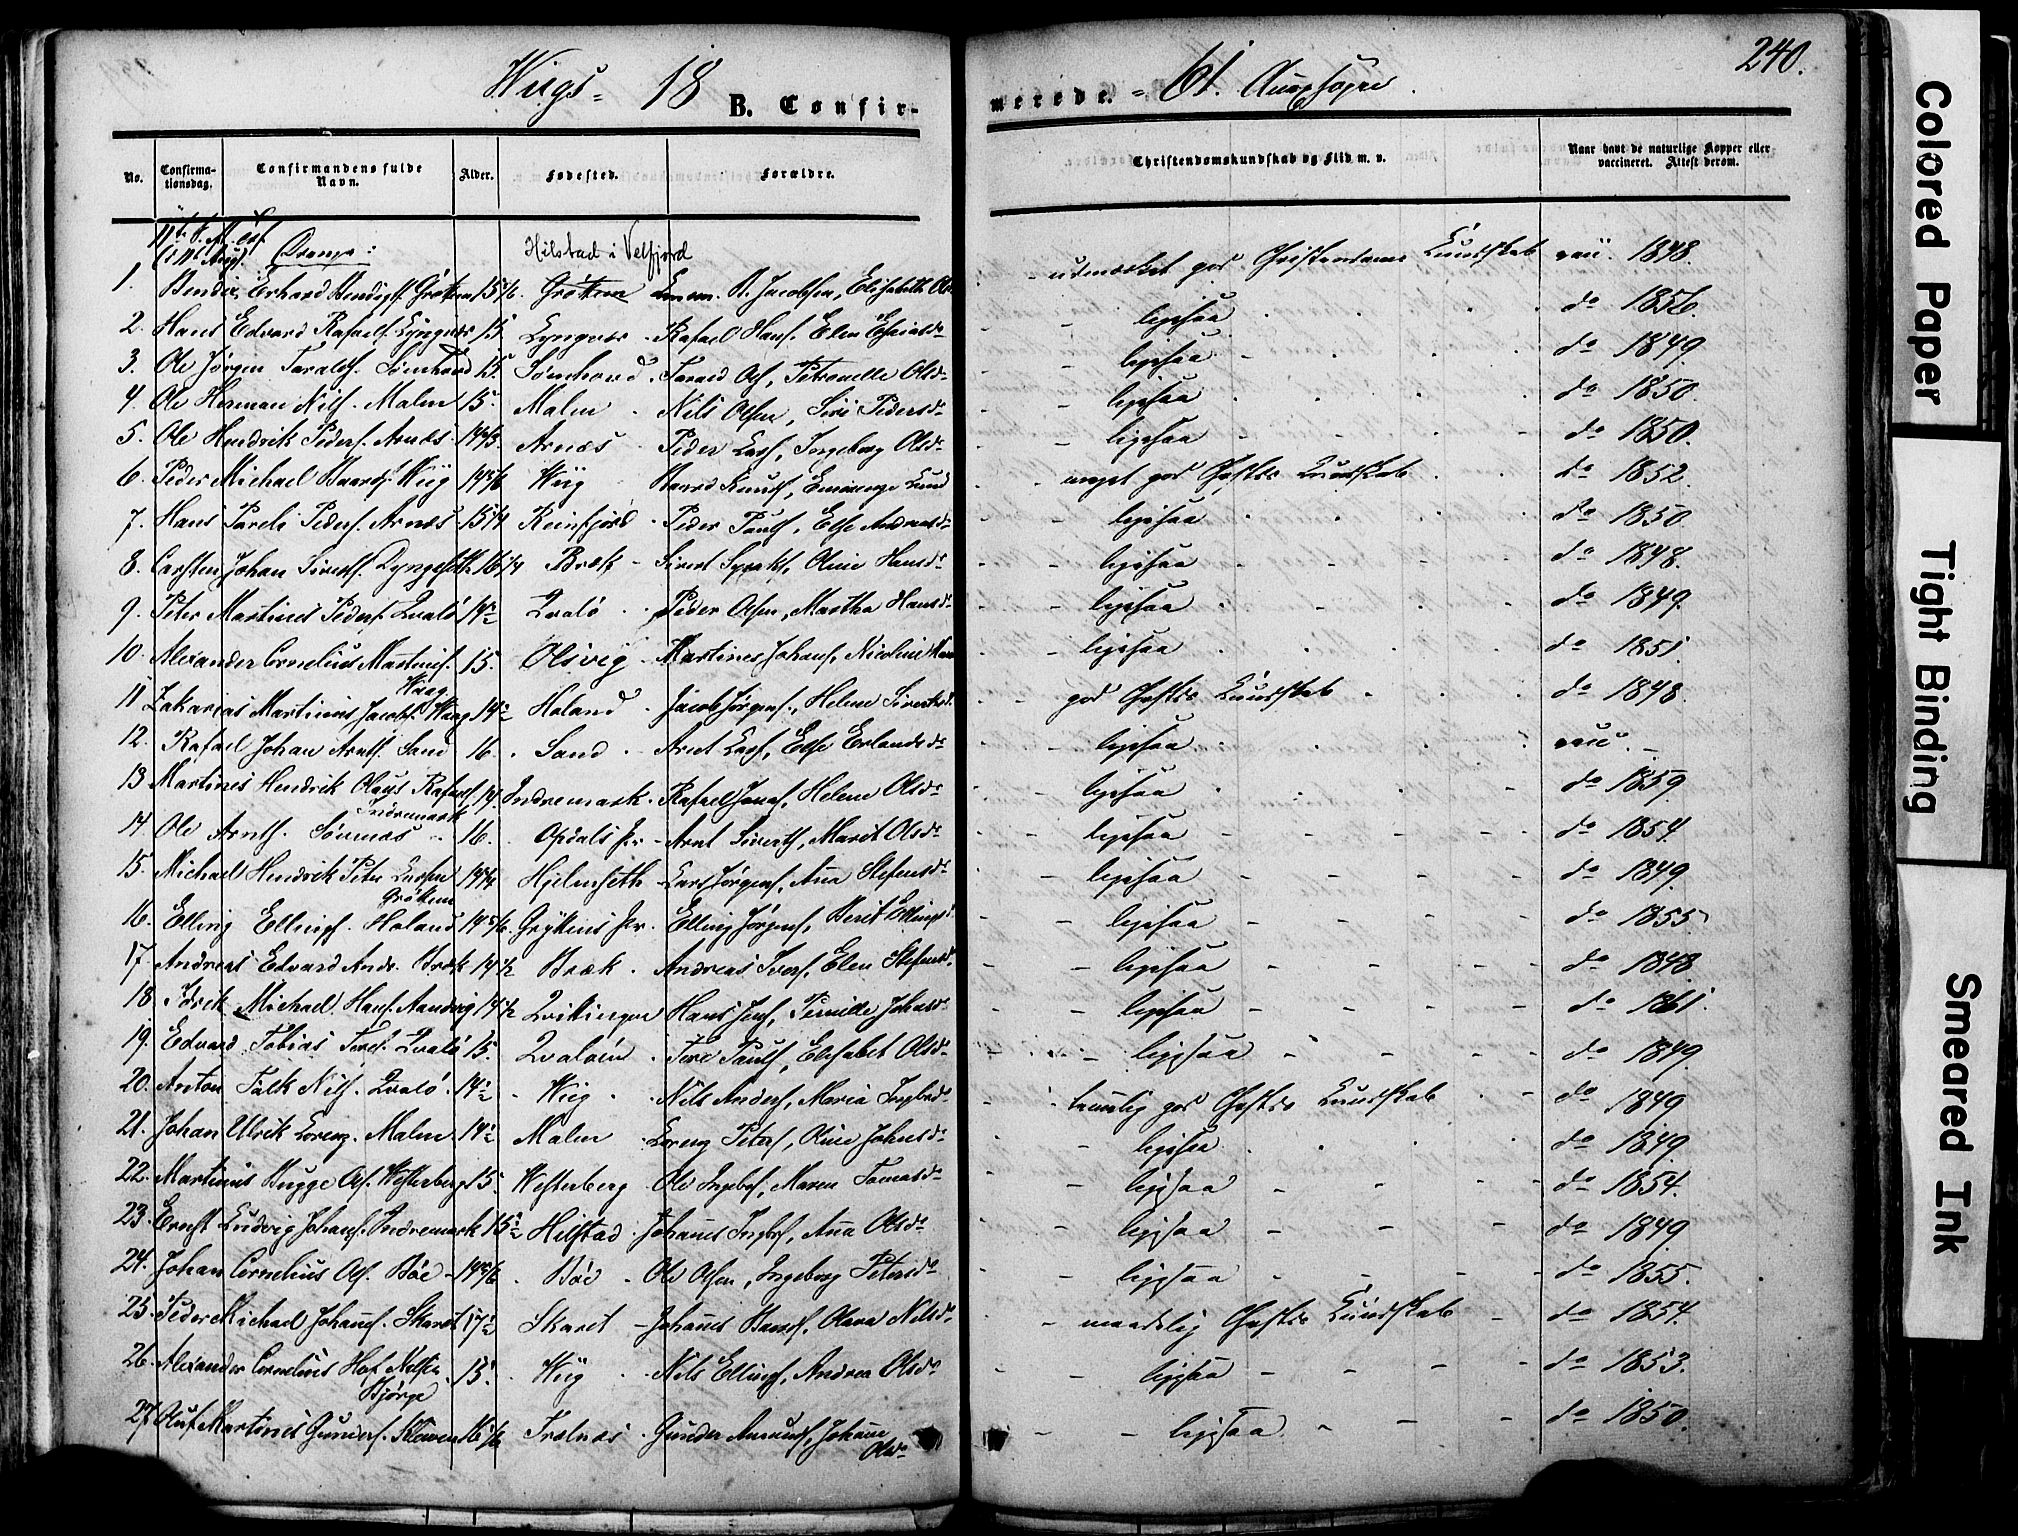 Wiigs- 18 B. Confir-
merede. - 61. Annexsogn.
240.
No.
Confirma-
tionsdag.
Confirmandens fulde
Navn.
Alder.
Fødested.
Forældre.
Christendomskundskab og Flid m. v.
Naar havt de naturlige Kopper eller
vaccineret. Attest derom.
Drenge:
Hilstad i Velfjord
1. Erhard Grøttem 15 Grøttem B. Jacobsen, Elisabeth Ols
udmærket god Christendoms Kundskab vacc. 1848.
2. Hans Edvard Rafaels. Lyngnæs 15. Lyngnæs - Rafael Hans., Elen Esaiasdr
ligesaa do 1856.
3. Ole Jørgen Taralds. Sømhovd 15. Sømhovd. Tarald Ols., Petronelle Olsdr
ligesaa do 1849.
4. Ole Herman Nils. Malm 15. Malm - Nils Olsen, Siri Pedersdr
ligesaa do 1850.
5. Ole Hendrik Peders. Arnæs Arnæs - Peder Lars., Ingeborg Olsdr
ligesaa do 1850.
6. Peder Michael Baards. Wiig Wiig Baard Knuds., Lund
meget god Chrstds Kundskab do 1852.
7. Hans Pareli Peders. Arnæs 15 1/4 Reinfjord - Peder Pauls., Else Andreasdr
ligesaa do 1850.
8. Carsten Johan Siverts. Lyngseth 16 1/4 Bræk - Sivert, Oline Hansdr
ligesaa do 1848.
9. Peter Martines Peders. Qvalø Qvalø - Peder Olsen, Martha Hansdr
ligesaa do 1849.
10. Alexander Cornelius Martines. 15. Olsvig - Martines Johans., Nicoline
Waag
ligesaa do 1851.
11. Zakarias Martinus Jacobs. Waag 14 Høland - Jacob Jørgens., Helene Sivertsd.
god Chrstds Kundskab do 1848.
12. Rafael Johan Arnts. Sand 16. Sand - Arnt Lars., Else Erlandsdr
ligesaa vacc. -
13. Martines Hendrik Olaus Rafaels. 14. Indremark. Rafael Jonas., Helene Olsdr
Indremark
ligesaa do 1859.
14. Ole Arnts. Sørnæs - 16. Opdals Pr. - Arnt Siverts., Marit Olsdr
ligesaa do 1854.
15. Michael Hendrik Peter Larsen Hjelmseth - Lars Jørgens., Ana Stefensdr
Grøttem
ligesaa do 1849.
16. Elling Ellings. Høland 14 5/6 Gryttens Pr. Elling Jørgens., Berit Ellingsd.
ligesaa do 1855.
17. Andreas Edvard Andr. Bræk 14 1/2 Bræk - Andreas Ivers., Elen Stefensdr
ligesaa do 1848
18. Idrik Michael Hans. Sandvig 14 1/2 Hans Jens., Pernille Johansdr
ligesaa do 1861.
19. Edvard Tobias Qvalø 15. Pauls., Elisabet Olsdr
ligesaa do 1849.
20. Anton Falk Nils. Qvalø. 14 Wiig. Nils Anders., Maria Ingebrdr
temmelig god Chrstds Kundskab do 1849
21. Johan Ulrik Lorenz. Malm 14 Malm - Lorenz Peters., Oline Johnsdr
ligesaa do 1849.
22. Martinus Bugge Ols. Westerberg 15. Westerberg - Ole Ingebr., Maren Tomasdr
ligesaa do 1854.
23. Ernst Ludvig Johans. Indremark 15 Hilstad. Johannes Ingebr., Ana Olsdr
ligesaa do 1849
24. Johan Cornelius Ols. Bøe - 14 5/6 Bøe - Ole Olsen, Ingeborg Petersdr
ligesaa do 1855.
25. Peder Michael Johans. Skaret 17 Skaret - Johannes Baards., Olava Nilsdr
maadelig Chrstds Kundskab - do 1854.
26. Alexander Cornelius Hof Nilsen 15. Wiig - Nils Ellings., Andrea Olsdr
Bjørge
ligesaa do 1853.
27. Oluf Martines Gunders. Kleven 16 1/6 Trælnæs. Gunder Amunds., Johanna
Olsdr
ligesaa do 1850.
Colored Paper
Tight Binding
Smeared Ink